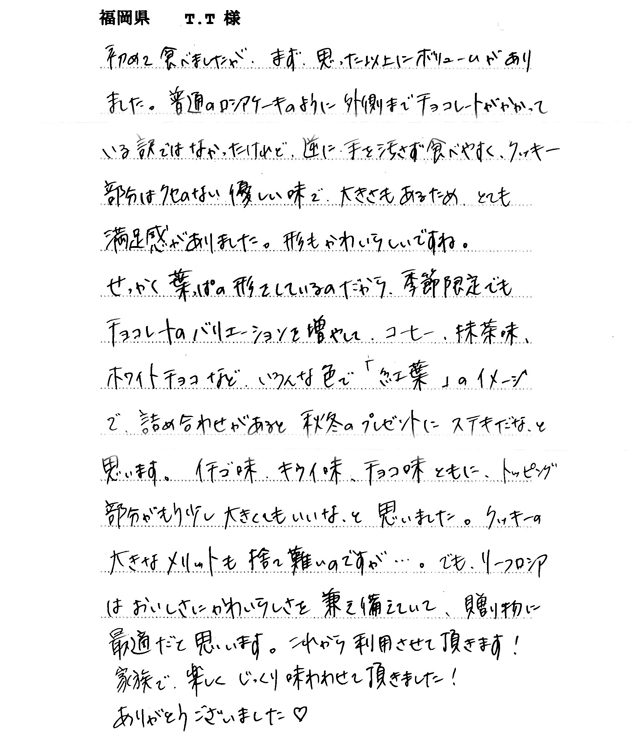 福岡県　T.T 様
初めて食べましたが、まず、思った以上にボリュームがあり
ました。普通のロシアケーキのように外側までチョコレートがかかって
いる訳ではなかったけれど、逆に手を汚さず食べやすく、クッキー
部分はクセのない優しい味で、大きさもあるため、とても
満足感がありました。形もかわいらしいですね。
せっかく葉っぱの形をしているのだから、季節限定でも
チョコレートのバリエーションを増やして、コーヒー、抹茶味、
ホワイトチョコなど、いろんな色で「紅葉」のイメージ
で、詰め合わせがあると秋冬のプレゼントにステキだな、と
思います。イチゴ味、キウイ味、チョコ味ともに、トッピング
部分がもう少し大きくてもいいな、と思いました。クッキーの
大きなメリットも捨て難いのですが…。でも、リーフロシア
はおいしさにかわいらしさを兼え備えていて、贈り物に
最適だと思います。これから利用させて頂きます!
家族で、楽しくじっくり味わわせて頂きました!
ありがとうございました♡